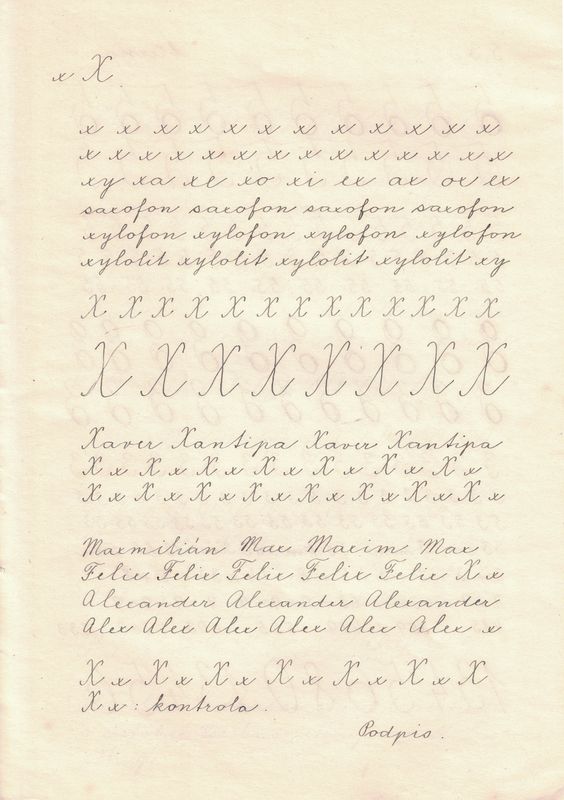 x X
x x x x x x x x x x x x
x x x x x x x x x x x x x
xy xa xe xo xi ex ax ox ex
saxofon saxofon saxofon saxofon
xylofon xylofon xylofon xylofon
xylolit xylolit xylolit xylolit xy
X X X X X X X X X X X X
X X X X X X X X
Xaver Xantipa Xaver Xantipa
X x X x X x X x X x X x X x
X x X x X x X x X x X x X x X x
Maxmilián Max Maxim Max
Felix Felix Felix Felix Felix X x
Alexander Alexander Alexander
Alex Alex Alex Alex Alex Alex x
X x X x X x X x X x X x X
X x : kontrola.
Podpis.